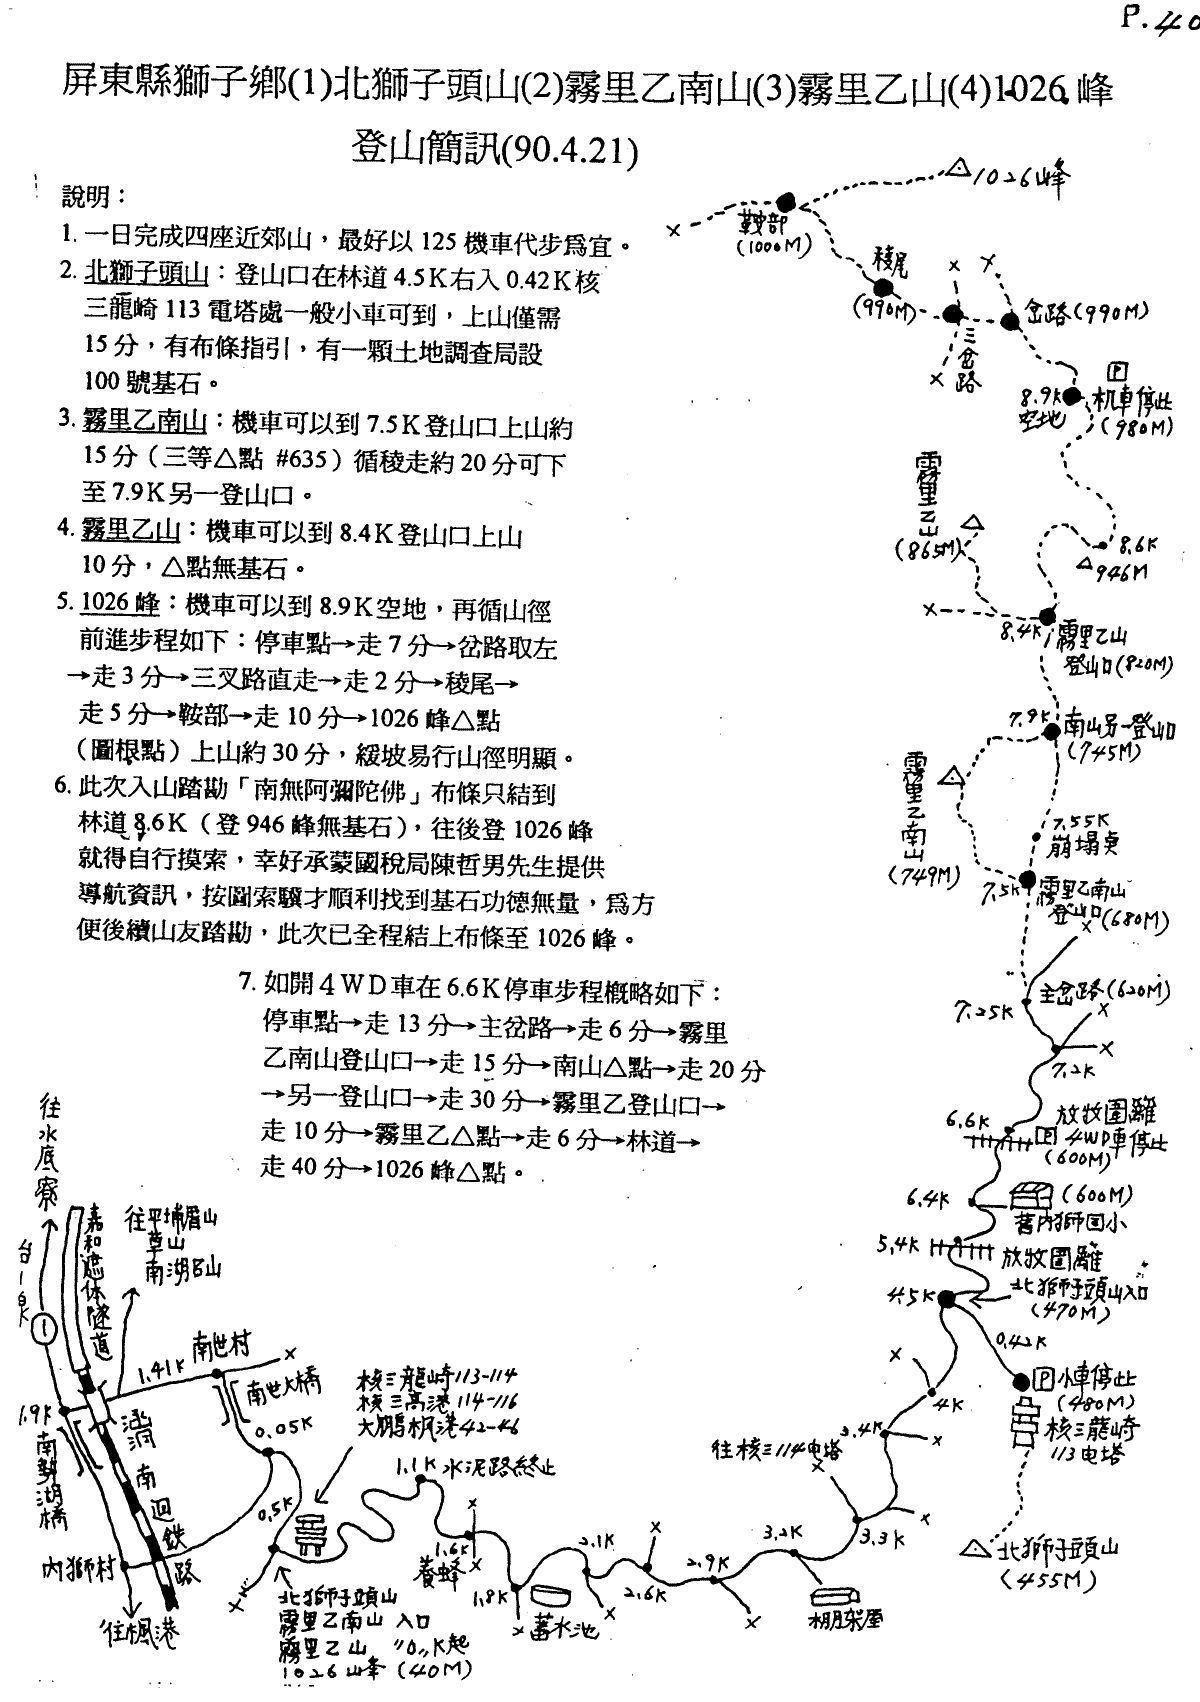 P.40
屏東縣獅子鄉(1)北獅子頭山(2)霧里乙南山(3)霧里乙山(4)1026峰
登山簡訊(90.4.21)
說明：
1. 一日完成四座近郊山，最好以125機車代步為宜。
2. 北獅子頭山：登山口在林道4.5K右入0.42K核
三龍崎113電塔處一般小車可到，上山僅需
15分，有布條指引，有一顆土地調查局設
100號基石。
3. 霧里乙南山：機車可以到7.5K登山口上山約
15分（三等△點 #635）循稜走約20分可下
至7.9K另一登山口。
4. 霧里乙山：機車可以到8.4K登山口上山
10分，△點無基石。
5. 1026峰：機車可以到8.9K空地，再循山徑
前進步程如下：停車點→走7分→岔路取左
→走3分→三叉路直走→走2分→稜尾→
走5分→鞍部→走10分→1026峰△點
（圖根點）上山約30分，緩坡易行山徑明顯。
6. 此次入山踏勘「南無阿彌陀佛」布條只結到
林道8.6K（登946峰無基石），往後登1026峰
就得自行摸索，幸好承蒙國稅局陳哲男先生提供
導航資訊，按圖索驥才順利找到基石功德無量，為方
便後續山友踏勘，此次已全程結上布條至1026峰。
7. 如開4WD車在6.6K停車步程概略如下：
停車點→走13分→主岔路→走6分→霧里
乙南山登山口→走15分→南山△點→走20分
→另一登山口→走30分→霧里乙登山口→
走10分→霧里乙△點→走6分→林道→
走40分→1026峰△點。
1026山峰
鞍部
(1000M)
稜尾
(990M)
三岔路
岔路(990M)
P
8.9K
空地
机車停止
(980M)
霧里乙山
(865M)
8.6K
946M
8.4K
霧里乙山
登山口(820M)
7.9K
南山另一登山口
(745M)
霧里乙南山
(749M)
7.55K
崩塌点
7.5K
霧里乙南山
登山口(680M)
主岔路(620M)
7.25K
7.2K
6.6K
放牧圍籬
P 4WD車停止
(600M)
6.4K
(600M)
舊內獅國小
5.4K
放牧圍籬
4.5K
北獅子頭山入口
(470M)
0.42K
P小車停止
(480M)
核三龍崎
113电塔
北獅子頭山
(455M)
4K
3.4K
往核三114电塔
3.3K
3.2K
棚架屋
2.9K
2.6K
2.1K
蓄水池
1.8K
1.6K
養蜂
1.1K水泥路終止
核三龍崎113-114
核三高港114-116
大鵬楓港42-46
往水底寮
台1線
1
嘉和遮体隧道
往平埔厝山
草山
南湖呂山
1.41K
南世村
南世大橋
0.05K
0.5K
1.9K
南勢湖橋
涵洞
南迴鉄路
內獅村
往楓港
北獅子頭山
霧里乙南山 入口
霧里乙山 "0"K起
1026山峰 (40M)